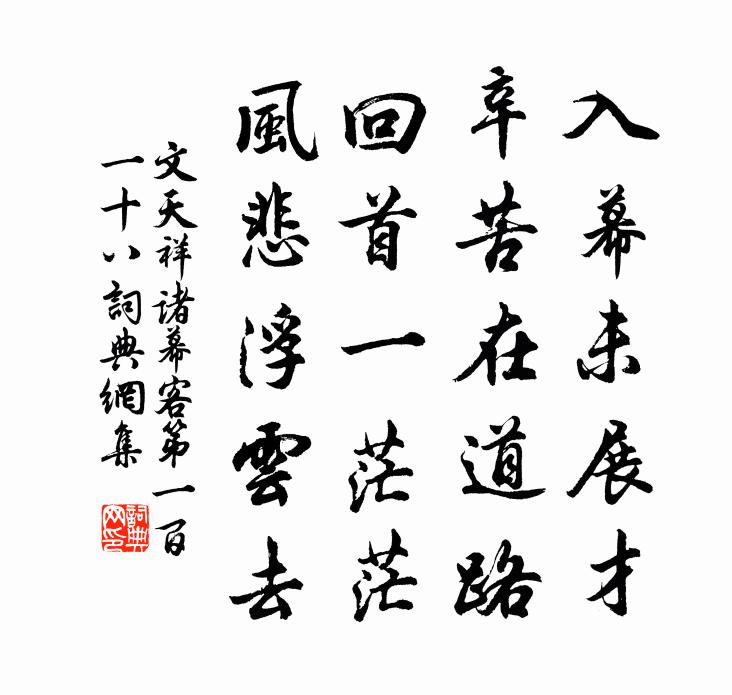 入幕未展才
辛苦在道路
回首一茫茫
風悲浮雲去
文天祥諸幕客第一百
一十八詞典網集
詞典
网印